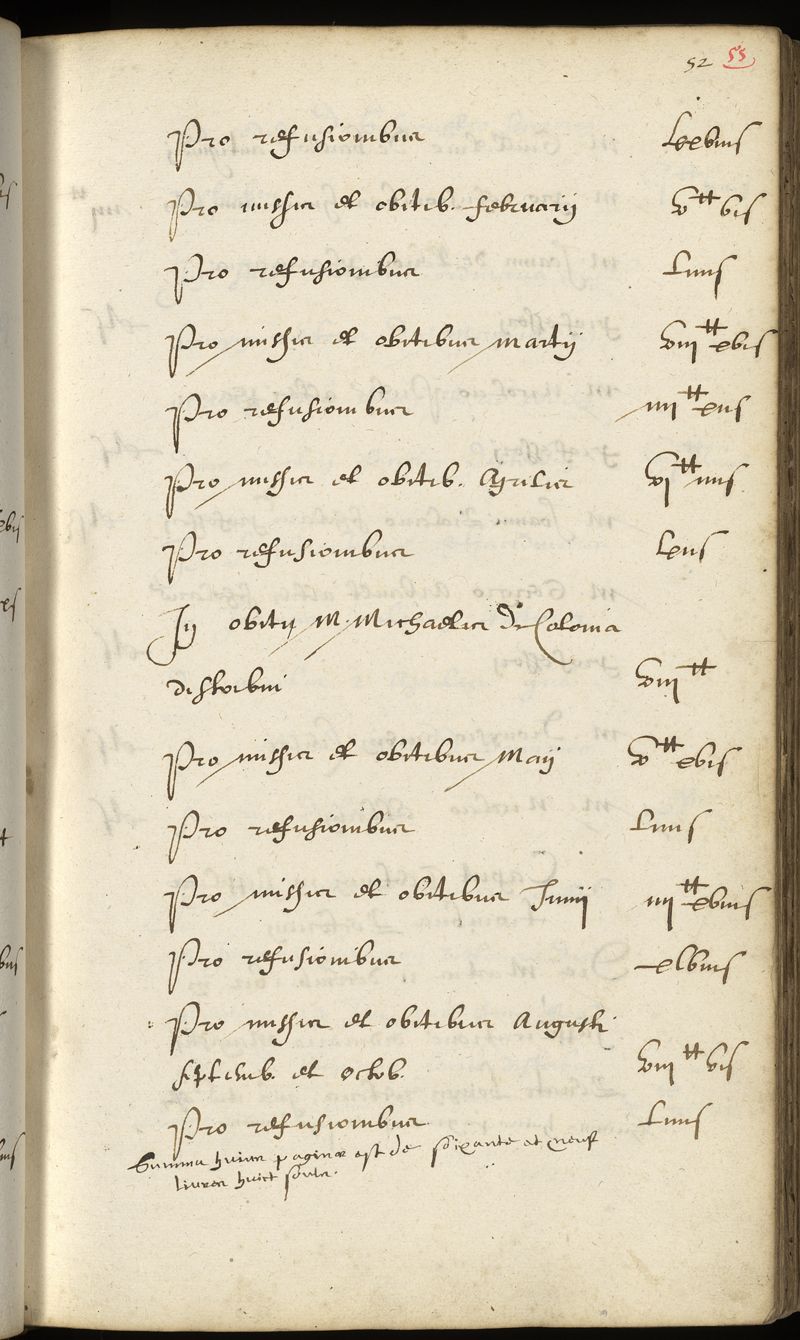 52 55
Pro refusionibus lxxviiis
Pro missis et obitib. februarij vtt vis
Pro refusionibus liiiis
Pro missis et obitibus martij viiitt xvis
Pro refusionibus iiiitt xiis
Pro missis et obitib. Aprilis vitt iiiis
Pro refusionibus lxiis
In obitu M. Michaelis de Colonia
distribui viiitt
Pro missis et obitibus Maij vtt xvis
Pro refusionibus liiiis
Pro missis et obitibus Junij iiiitt xviiis
Pro refusionibus xlviiis
Pro missis et obitibus Augusti
septemb. et octob. viiitt vis
Pro refusionibus liiiis
Summa huius paginae est de soixante et neuf
livres huict soulz.